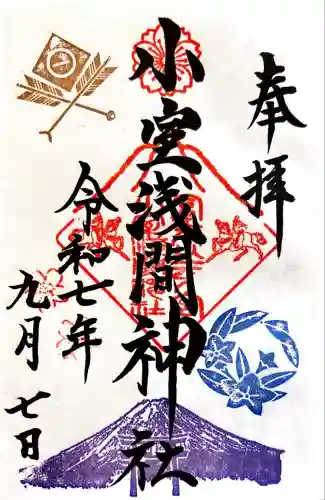 奉拝
小室浅間神社
令和七年
九月七日